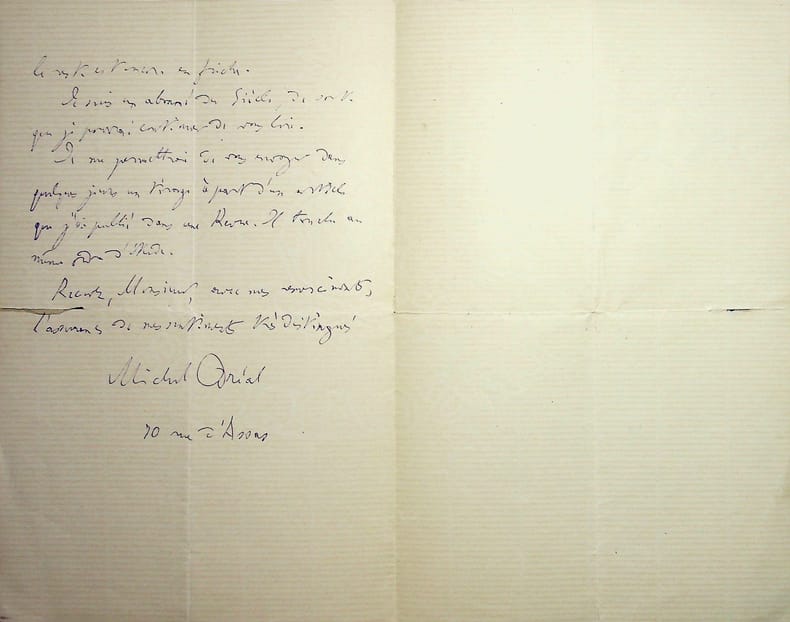 le reste est encore en friche.
Je suis un abonné du Siècle, de sorte
que je pourrai continuer de vous lire.
Je me permettrai de vous envoyer dans
quelques jours un tirage à part d'un article
que j'ai publié dans une Revue. Il touche au
même ordre d'études.
Recevez, Monsieur, avec mes remerciments,
l'assurance de mes sentiments très distingués
Michel Bréal
70 rue d'Assas